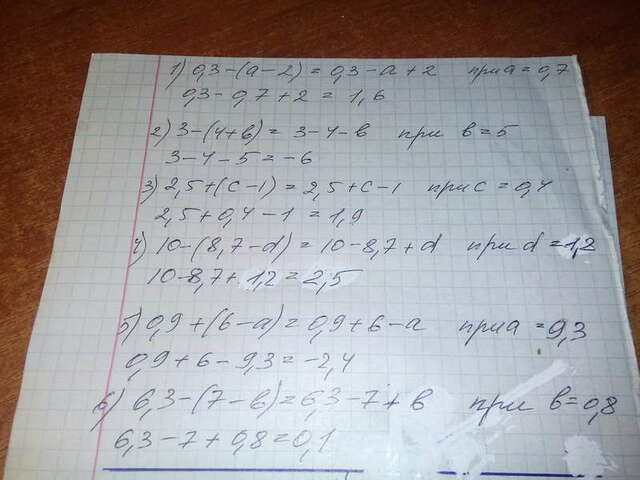 1) 0,3-(а-2)=0,3-а+2 при а=0,7
0,3-0,7+2=1,6
2) 3-(4+в)=3-4-в при в=5
3-4-5=-6
3) 2,5+(с-1)=2,5+с-1 при с=0,4
2,5+0,4-1=1,9
4) 10-(8,7-d)=10-8,7+d при d=1,2
10-8,7+1,2=2,5
5) 0,9+(6-а)=0,9+6-а при а=9,3
0,9+6-9,3=-2,4
6) 6,3-(7-в)=6,3-7+в при в=0,8
6,3-7+0,8=0,1